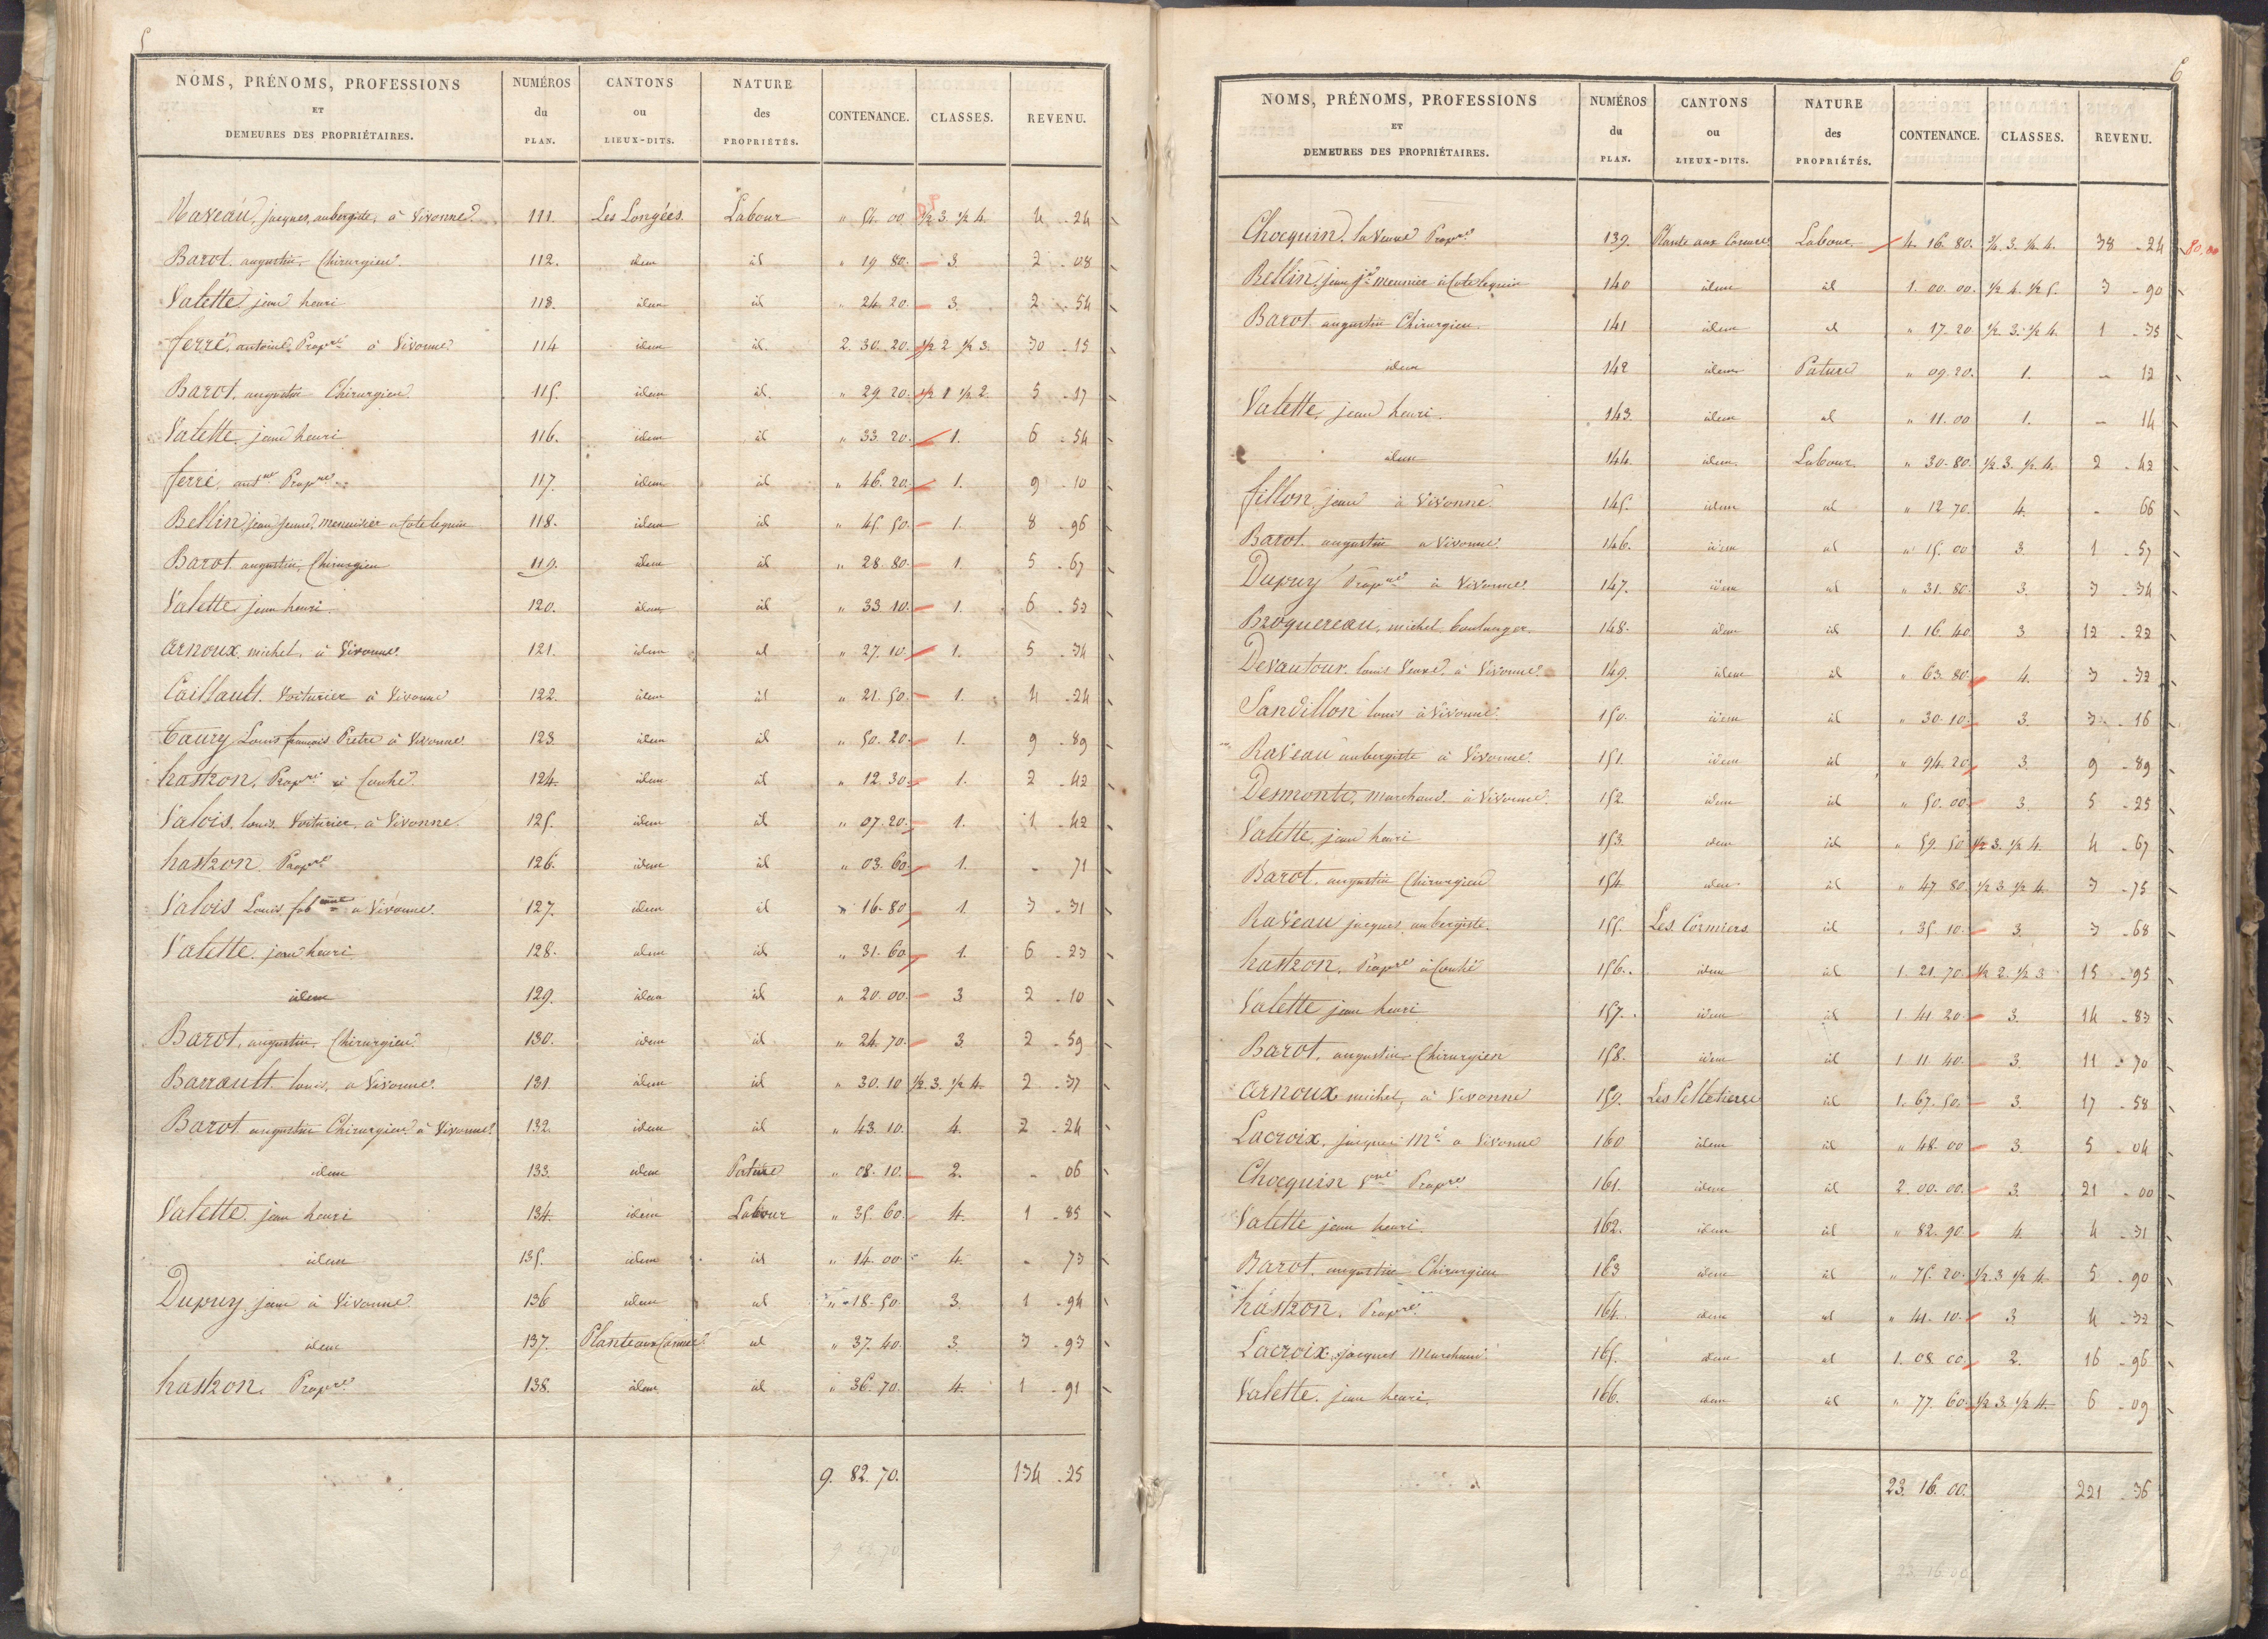 5
NOMS, PRÉNOMS, PROFESSIONS ET DEMEURES DES PROPRIÉTAIRES. NUMÉROS du PLAN. CANTONS ou LIEUX-DITS. NATURE des PROPRIÉTÉS. CONTENANCE. CLASSES. REVENU.
Raveau, jacques, aubergiste, à Vivonne 111. Les Longées Labour " 54. 00. ½ 3. ½ 4. 4 - 24
Barot. augustin, Chirurgien. 112. idem id " 19 80. 3. 2 - 08
Valette jean henri 113. idem id " 24. 20. 3. 2 - 54
ferré, antoine, Propre à Vivonne 114 idem id. 2. 30. 20. ½ 2 ½ 3. 30 - 15
Barot, augustin Chirurgien. 115. idem id. " 29. 20. ½ 1 ½ 2. 5 - 17
Valette, jean henri 116. idem id " 33. 20. 1. 6 - 54
ferré, antne Propre 117. idem id " 46. 20. 1. 9 - 10
Bellin, jean jeune, menuisier 118. idem id " 45. 50. 1. 8 - 96
Barot augustin, Chirurgien 119. idem id " 28. 80. 1. 5 - 67
Valette, jean henri. 120. idem id " 33 10. 1. 6 - 52
arnoux, michel, à Vivonne. 121. idem id " 27. 10. 1. 5 - 34
Caillault. Voiturier à Vivonne 122. idem id " 21. 50. 1. 4 - 24
Taury, Louis françois Prêtre à Vivonne. 123 idem id " 50. 20. 1. 9 - 89
hastron, Propre à Couhé. 124. idem id " 12. 30. 1. 2 - 42
Valois, louis, Voiturier, à Vivonne. 125. idem id " 07. 20. 1. 1 - 42
hastron. Propre 126. idem id " 03. 60. 1. - 71
Valois Louis, à Vivonne. 127. idem id " 16. 80 1. 3 - 31
Valette. jean henri. 128. idem id " 31. 60 1. 6 - 23
idem 129. idem id " 20. 00. 3 2 - 10
Barot, augustin, Chirurgien. 130. idem id " 24. 70. 3. 2 - 59
Barrault. louis, à Vivonne. 131 idem id " 30. 10 ½ 3. ½ 4. 2 - 37
Barot augustin Chirurgien à Vivonne. 132. idem id " 43. 10. 4. 2 - 24
idem 133. idem Pature " 08. 10. 2. - 06
Valette. jean henri 134. idem Labour " 35. 60. 4. 1 - 85
idem 135. idem id " 14. 00. 4. - 73
Dupuy. jean à Vivonne 136 idem id " 18. 50. 3. 1 - 94
idem 137. Plante aux id " 37. 40. 3. 3 - 93
hastron. Propre 138. idem id " 36. 70. 4. 1 - 91
9. 82. 70. 134 - 25
6
NOMS, PRÉNOMS, PROFESSIONS ET DEMEURES DES PROPRIÉTAIRES. NUMÉROS du PLAN. CANTONS ou LIEUX-DITS. NATURE des PROPRIÉTÉS. CONTENANCE. CLASSES. REVENU.
Chocquin. la Veuve Propre 139. Plante aux Labour 4. 16. 80. ½. 3. ½. 4. 38 - 24 80,00
Bellin, jean 140 idem id 1. 00. 00. ½ 4. ½ 5. 3 - 90
Barot augustin Chirurgien. 141 idem id " 17. 20. ½ 3. ½ 4. 1 - 35
idem 142 idem Pature " 09. 20. 1. - 12
Valette, jean henri. 143. idem id " 11. 00 1. - 14
idem 144. idem Labour. " 30. 80. ½ 3. ½ 4. 2 - 42
fillon, jean à Vivonne. 145. idem id " 12 70. 4. - 66
Barot. augustin à Vivonne. 146. idem id " 15. 00 3. 1 - 57
Dupuy Propre à Vivonne. 147. idem id " 31. 80. 3. 3 - 34
Broquereau, michel, boulanger. 148. idem id 1. 16. 40 3 12 - 22
Devautour. louis Veuve, à Vivonne. 149. idem id " 63. 80. 4. 3 - 32
Sandillon louis à Vivonne. 150. idem id " 30. 10. 3. 3 - 16
Raveau aubergiste à Vivonne. 151. idem id " 94. 20. 3. 9 - 89
Desmonts, Marchand à Vivonne. 152. idem id " 50. 00. 3. 5 - 25
Valette, jean henri 153. idem id " 59. 50. ½ 3. ½ 4. 4 - 67
Barot. augustin Chirurgien 154. idem id " 47. 80. ½ 3 ½ 4. 3 - 75
Raveau jacques, aubergiste. 155. Les Cormiers id " 35. 10. 3. 3 - 68
hastron. Propre à Couhé 156. idem id 1. 21. 70. ½ 2. ½ 3 15 - 95
Valette jean henri 157. idem id 1. 41. 20. 3. 14 - 83
Barot. augustin Chirurgien 158. idem id 1. 11. 40. 3. 11 - 70
arnoux michel, à Vivonne 159. Les Pelletiers id 1. 67. 50. 3. 17 - 58
Lacroix, jacques Md à Vivonne 160 idem id " 48. 00 3. 5 - 04
Chocquin Vve Propre 161. idem id 2. 00. 00. 3. 21 - 00
Valette jean henri. 162. idem id " 82. 90. 4. 4 - 31
Barot. augustin Chirurgien 163 idem id " 75. 20. ½ 3 ½ 4. 5 - 90
hastron. Propre 164. idem id " 41. 10. 3 4 - 32
Lacroix, jacques Marchand 165. idem id 1. 08. 00. 2. 16 - 96
Valette. jean henri. 166. idem id " 77. 60. ½ 3. ½ 4. 6 - 09
23. 16. 00. 221 - 36